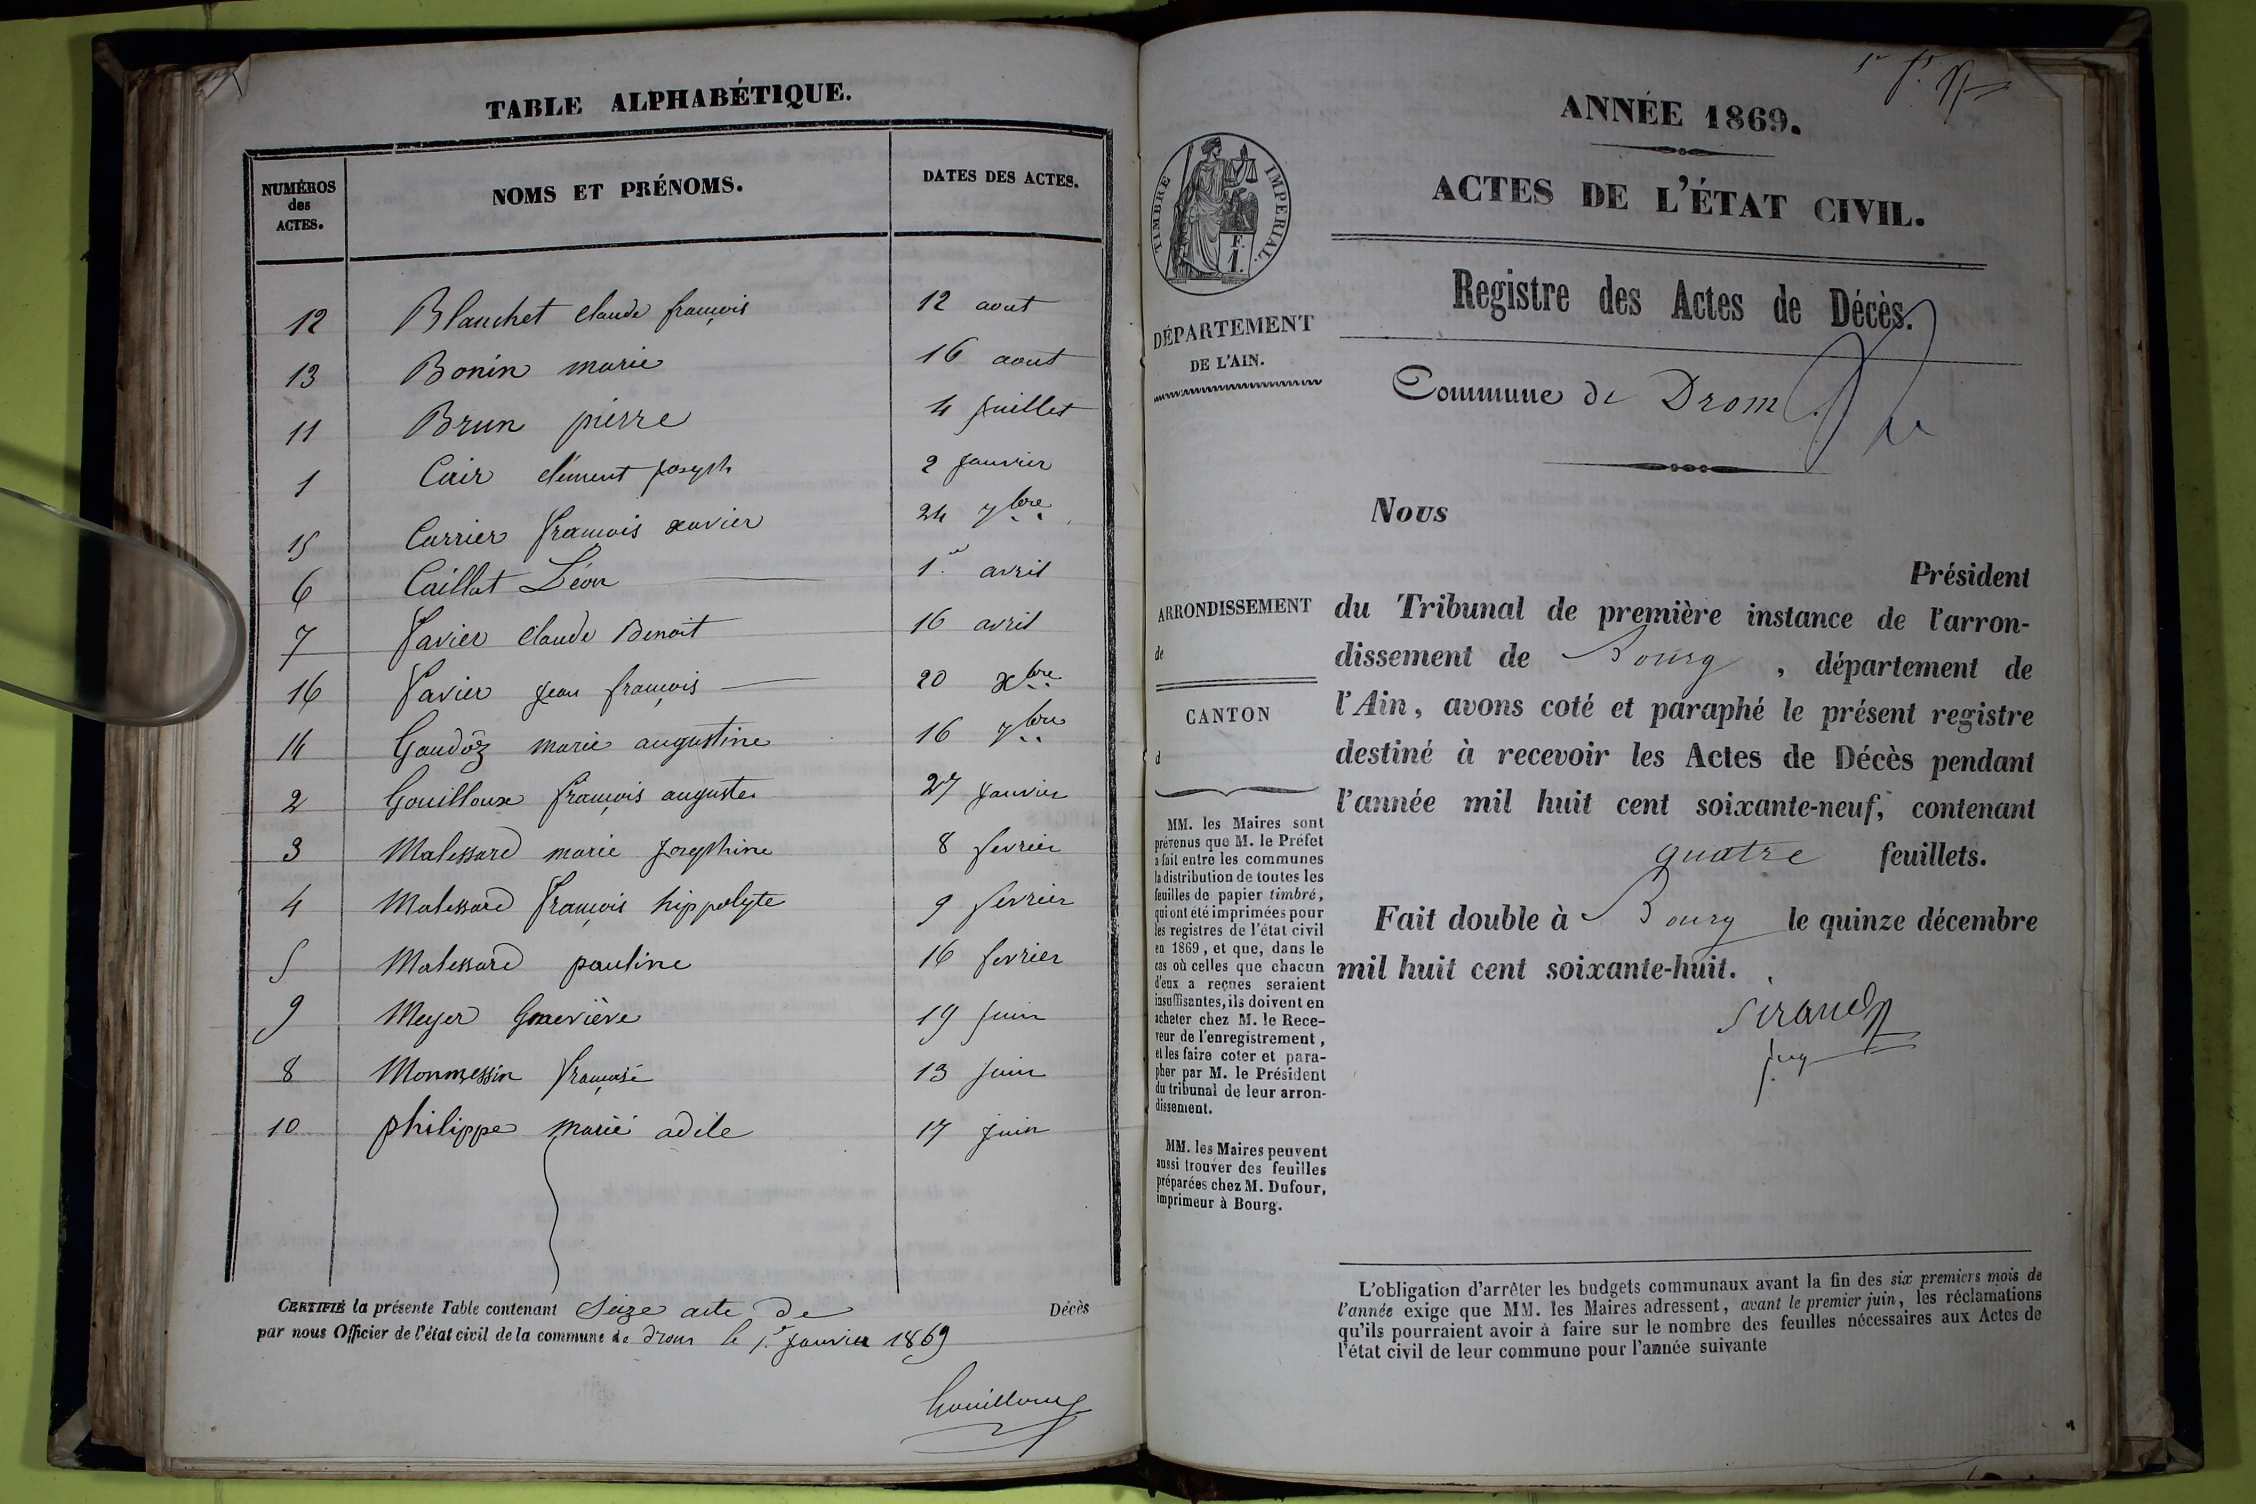 TABLE ALPHABÉTIQUE.
NUMÉROS
des
ACTES.
NOMS ET PRÉNOMS.
DATES DES ACTES.
12 Blanchet claude françois 12 aout
13 Bonin marie 16 aout
11 Brun pierre 4 juillet
1 Cair clément joseph 2 janvier
15 Carrier françois xavier 24 7bre
6 Caillat Léon 1er avril
7 Favier claude Benoit 16 avril
16 Favier jean françois 20 xbre
14 Gaudoz marie augustine 16 7bre
2 Gouilloux françois auguste 27 janvier
3 Malessard marie josephine 8 fevrier
4 Malessard françois hippolyte 9 fevrier
5 Malessard pauline 16 fevrier
9 Meyer Geneviève 19 juin
8 Monmessin françoise 13 juin
10 philippe marie adile 17 juin
CERTIFIÉ la présente Table contenant Seize acte de Décès
par nous Officier de l'état civil de la commune de drom le 1er janvier 1869
Gouilloux
ANNÉE 1869.
ACTES DE L'ÉTAT CIVIL.
TIMBRE IMPERIAL.
F.
1.
Registre des Actes de Décès.
DÉPARTEMENT
DE L'AIN.
Commune de Drom
Nous
Président
ARRONDISSEMENT
de
CANTON
d
du Tribunal de première instance de l'arron-
dissement de Bourg, département de
l'Ain, avons coté et paraphé le présent registre
destiné à recevoir les Actes de Décès pendant
l'année mil huit cent soixante-neuf, contenant
quatre feuillets.
Fait double à Bourg le quinze décembre
mil huit cent soixante-huit.
Sirand
MM. les Maires sont
prévenus que M. le Préfet
a fait entre les communes
la distribution de toutes les
feuilles de papier timbré,
qui ont été imprimées pour
les registres de l'état civil
en 1869, et que, dans le
cas où celles que chacun
d'eux a reçues seraient
insuffisantes, ils doivent en
acheter chez M. le Rece-
veur de l'enregistrement,
et les faire coter et para-
pher par M. le Président
du tribunal de leur arron-
dissement.
MM. les Maires peuvent
aussi trouver des feuilles
préparées chez M. Dufour,
imprimeur à Bourg.
L'obligation d'arrêter les budgets communaux avant la fin des six premiers mois de
l'année exige que MM. les Maires adressent, avant le premier juin, les réclamations
qu'ils pourraient avoir à faire sur le nombre des feuilles nécessaires aux Actes de
l'état civil de leur commune pour l'année suivante